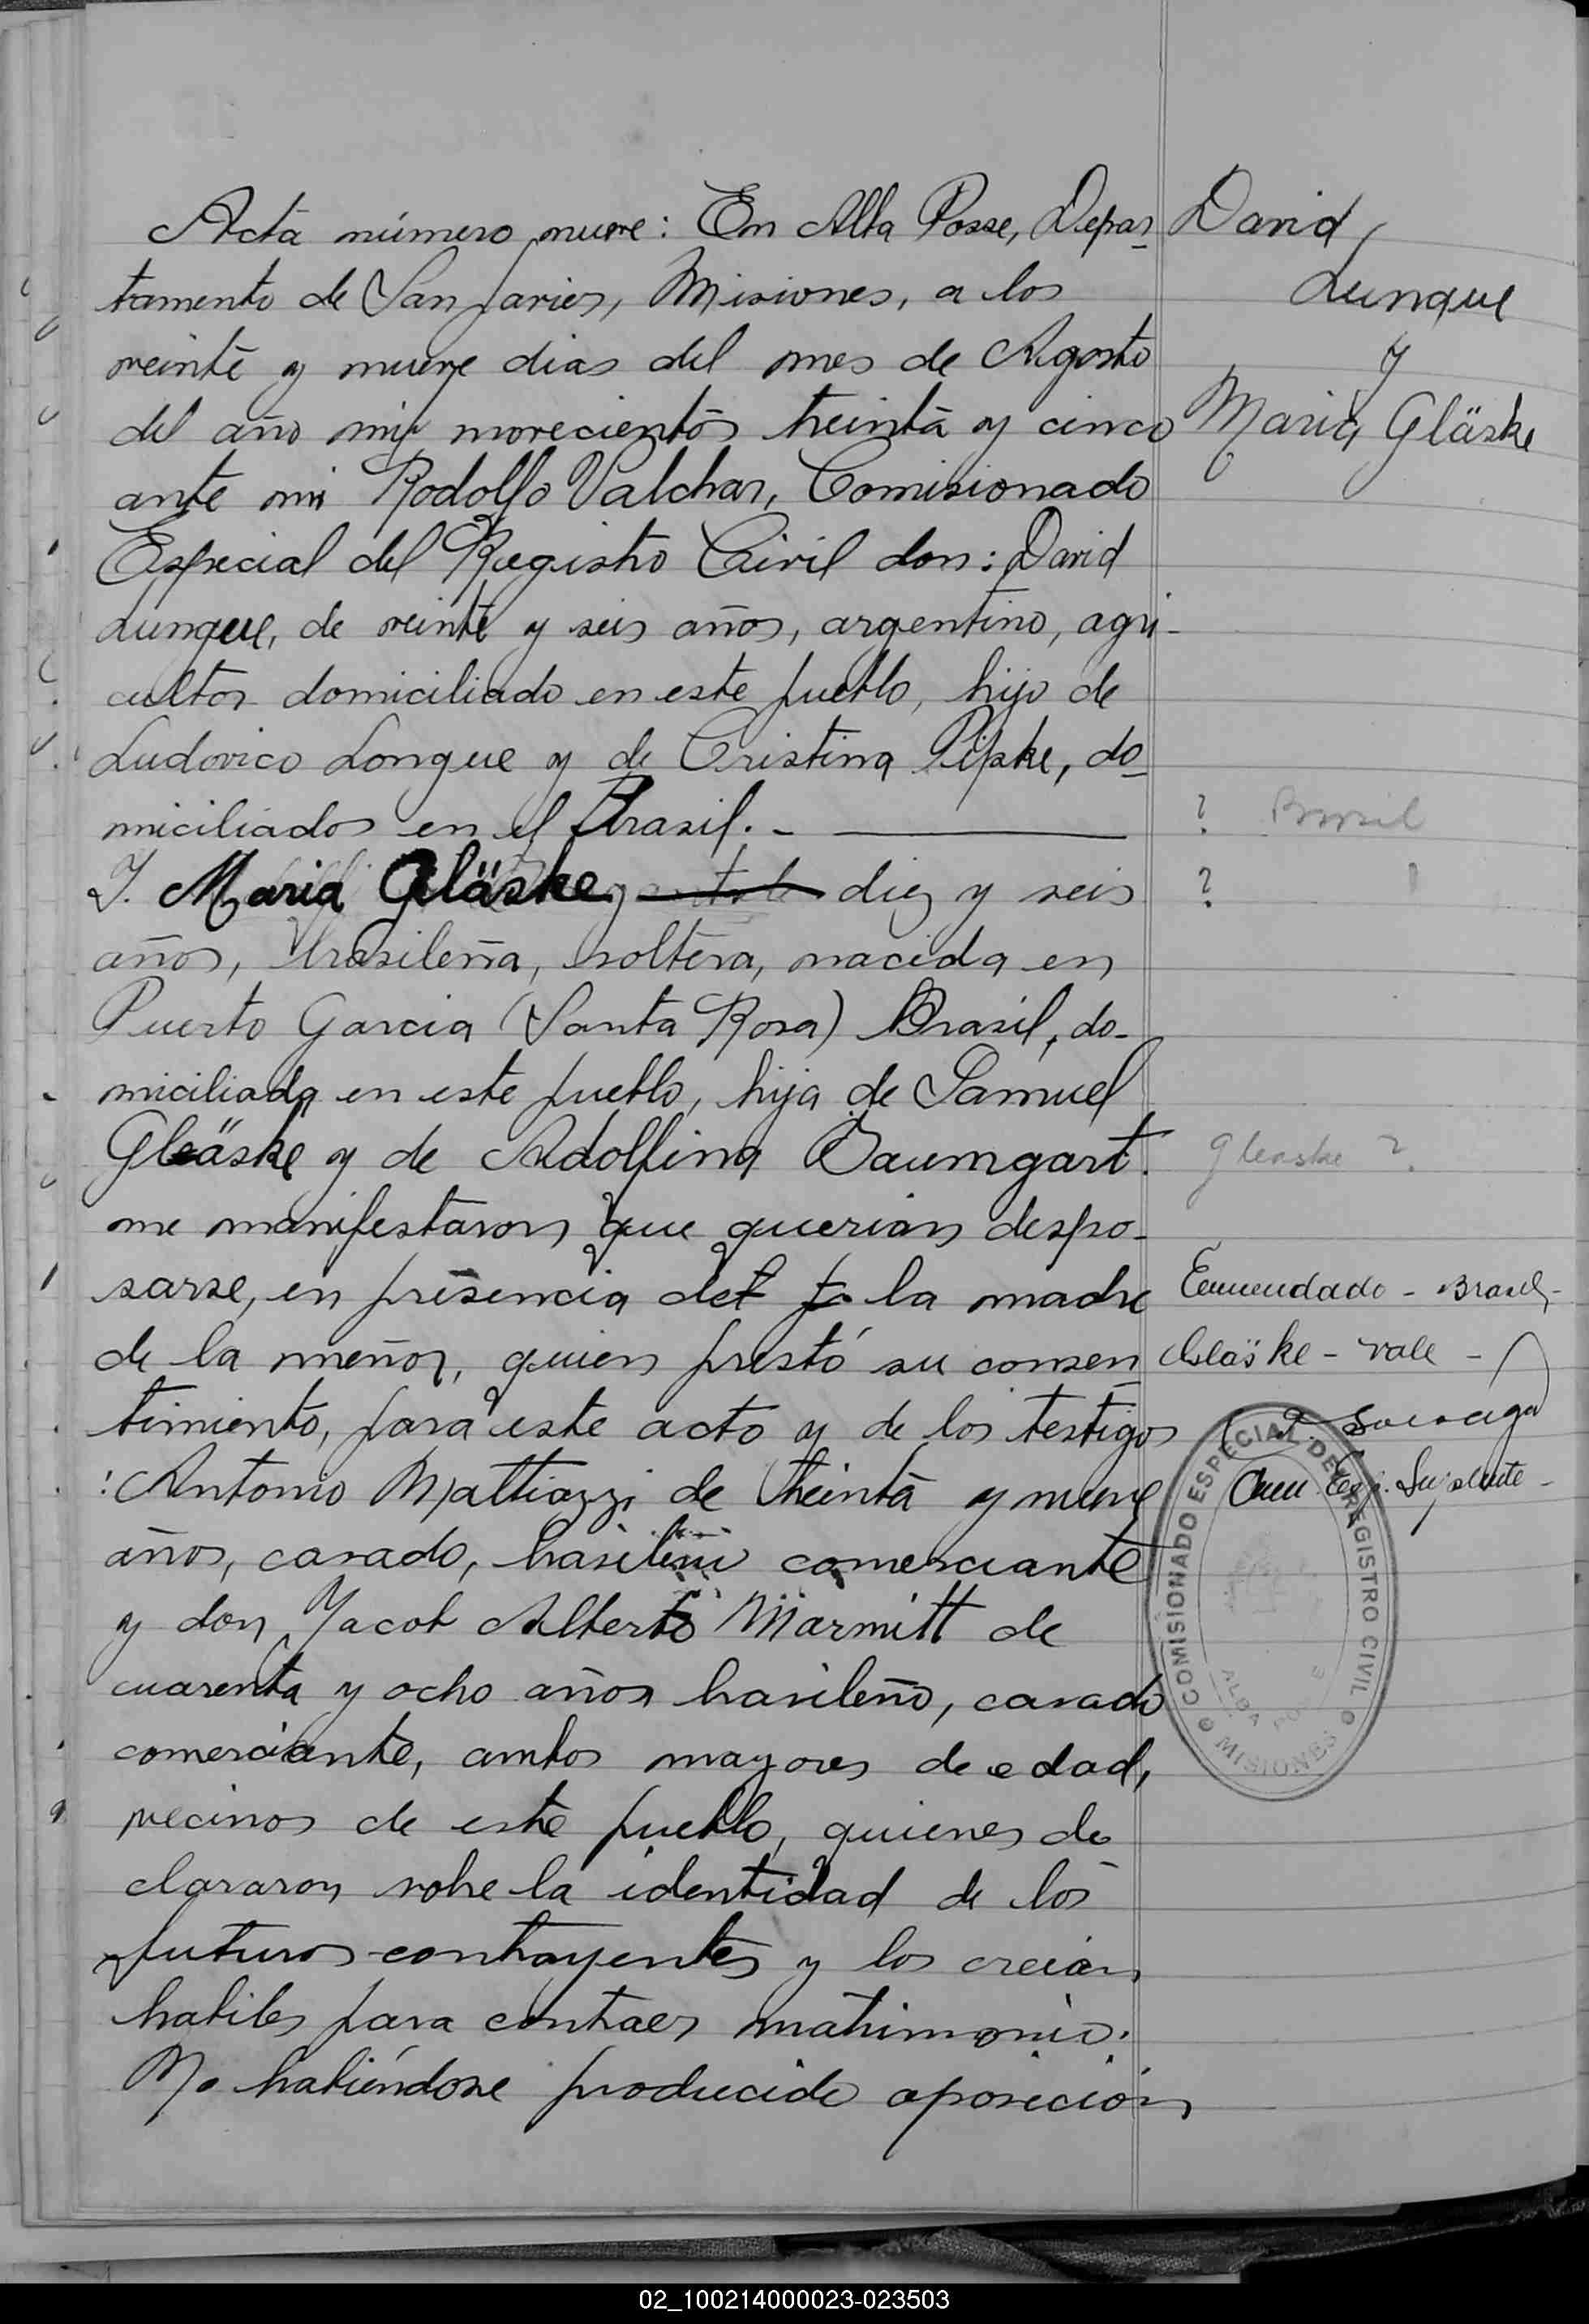 Acta número nueve: En Alba Posse, Depar-
tamento de San Javier, Misiones, a los
veinte y nueve dias del mes de Agosto
del año mil novecientos treinta y cinco
ante mi Rodolfo Valchar, Comisionado
Especial del Registro Civil don: David
Lunque, de veinte y seis años, argentino, agri-
cultor domiciliado en este pueblo, hijo de
Ludovico Longue y de Cristina Pipke, do-
miciliados en el Brasil. -
Y. Maria Gläske diez y seis
años, brasileña, soltera, nacida en
Puerto Garcia (Santa Rosa) Brasil, do-
miciliada en este pueblo, hija de Samuel
Gläske y de Adolfina Baumgart.
me manifestaron que querian despo-
sarse, en presencia de la madre
de la menor, quien prestó su consen-
timiento, para este acto y de los testigos
: Antonio Mattiazzi de treinta y nueve
años, casado, brasileño comerciante
y don Jacob Alberto Marmitt de
cuarenta y ocho años brasileño, casado
comerciante, ambos mayores de edad,
vecinos de este pueblo, quienes de-
clararon sobre la identidad de los
futuros contrayentes y los creian
habiles para contraer matrimonio.
No habiéndose producido oposición
David
Lunque
y
Maria Gläske
? Brasil
?
Gleaske ?
Enmendado - Brasil -
Gläske - vale -
Com. Esp. Suplente -
COMISIONADO ESPECIAL DEL REGISTRO CIVIL
ALBA POSSE
MISIONES
02_100214000023-023503